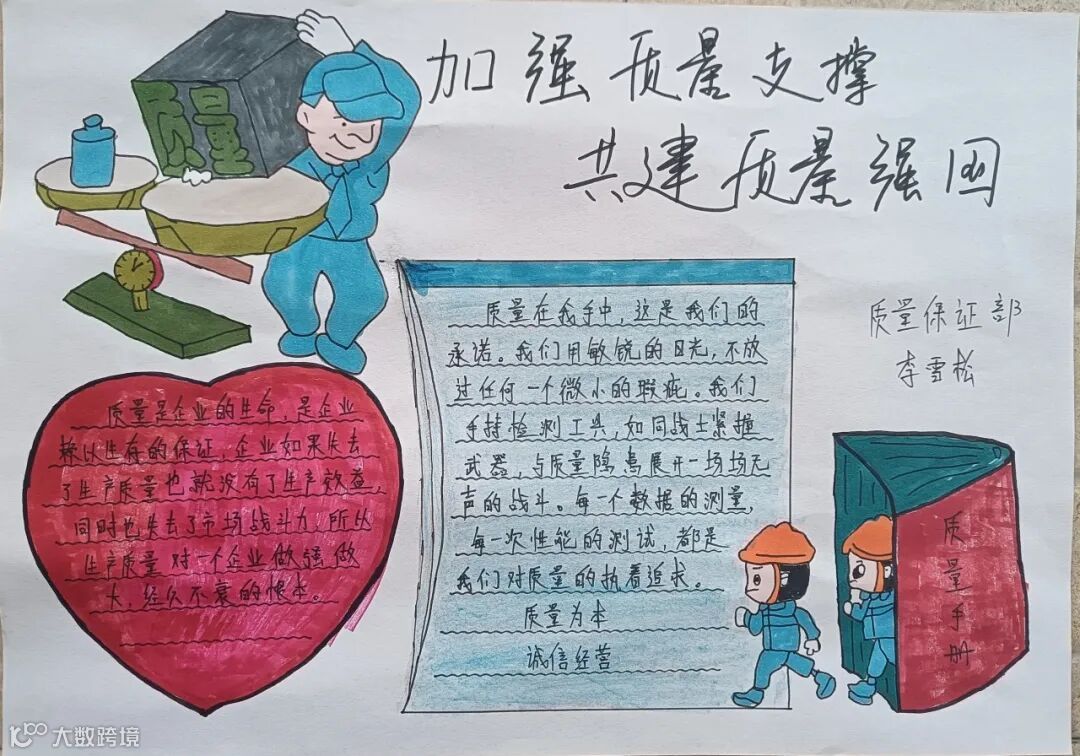 加强质量支撑
共建质量强国
质量
质量保证部
李雪松
质量在我手中,这是我们的
承诺。我们用敏锐的目光,不放
过任何一个微小的瑕疵。我们
手持检测工具,如同战士紧握
武器,与质量隐患展开一场场无
声的战斗。每一个数据的测量,
每一次性能的测试,都是
我们对质量的执着追求。
质量为本
诚信经营
质量是企业的生命,是企业
赖以生存的保证,企业如果失去
了生产质量也就没有了生产效益,
同时也失去了市场战斗力,所以
生产质量对一个企业做强做
大,经久不衰的根本。
质量手册
大数跨境